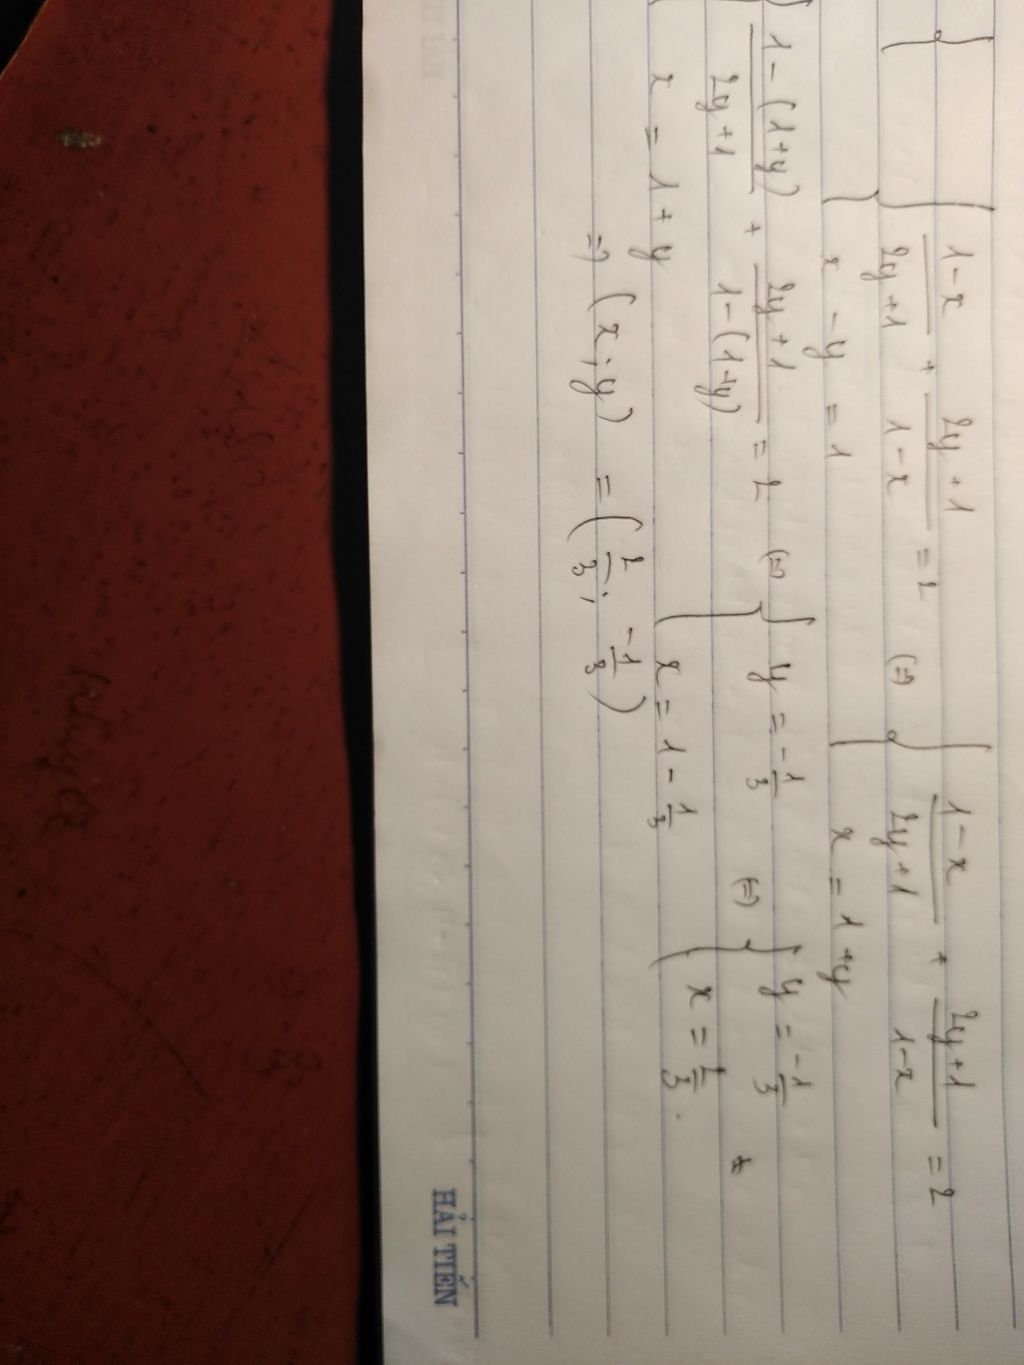 { (1-x)/(2y+1) + (2y+1)/(1-x) = 2 (=) { (1-x)/(2y+1) + (2y+1)/(1-x) = 2
x - y = 1 x = 1 + y
{ (1-(1+y))/(2y+1) + (2y+1)/(1-(1+y)) = 2 (=) { y = -1/3 (=) { y = -1/3
x = 1 + y x = 1 - 1/3 x = 2/3.
=) (x; y) = (2/3; -1/3)
HẢI TIẾN